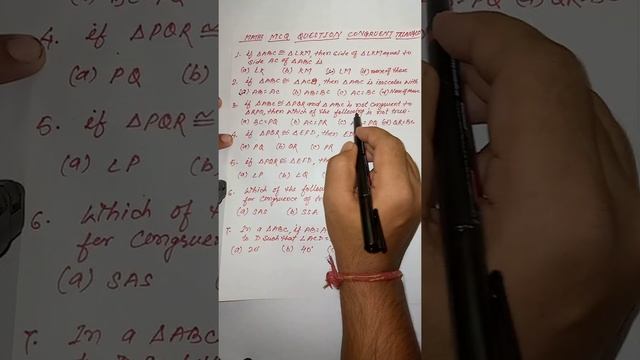 MATHS MCQ QUESTION CONGRUENT TRIANGLES
1. if △ABC ≅ △LKM, then side of △LKM equal to
side AC of △ABC is
(a) LK (b) KM (c) LM (d) none of these
2. if △ABC ≅ △ACB, then △ABC is isosceles with
(a) AB=AC (b) AB=BC (c) AC=BC (d) None of these
3. if △ABC ≅ △PQR and △ABC is not congruent to
△RPQ, then which of the following is not true:
(a) BC=PQ (b) AC=PR (c) PQ (d) QR=BC
4. if △PQR ≅ △EFD, then ED
(a) PQ (b) QR (c) PR
5. if △PQR ≅ △EFD, th
(a) LP (b) LQ (c)
6. Which of the follow
for congruence of
(a) SAS (b) SSA
7. In a △ABC, if AB=A
to D such that ∠ACD=
(a) 20° (b) 40°